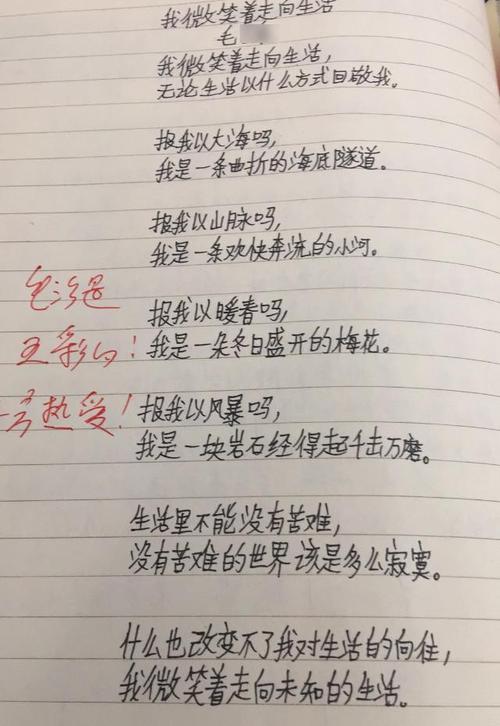 我微笑着走向生活
毛
我微笑着走向生活,
无论生活以什么方式回敬我。
报我以大海吗,
我是一条曲折的海底隧道。
报我以山脉吗,
我是一条欢快奔流的小河。
报我以暖春吗,
我是一朵冬日盛开的梅花。
报我以风暴吗,
我是一块岩石经得起千击万磨。
生活里不能没有苦难,
没有苦难的世界该是多么寂寞。
什么也改变不了我对生活的向往,
我微笑着走向未知的生活。
生活是
五彩的!
热爱!